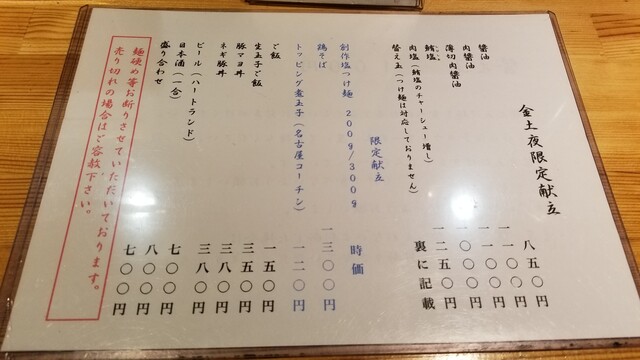 金土夜限定献立
醤油 八五〇円
肉醤油
薄切肉醤油
塩
肉塩(塩のチャーシュー増し) 一二五〇円
替え玉(つけ麺は対応しておりません) 裏に記載
限定献立
創作塩つけ麺 200g/300g 時価
鶏そば 一三〇〇円
トッピング煮玉子(名古屋コーチン) 一二〇円
ご飯 一五〇円
生玉子ご飯
豚マヨ丼 三八〇円
ネギ豚丼 三八〇円
ビール(ハートランド) 七〇〇円
日本酒(一合) 八〇〇円
盛り合わせ 七〇〇円
麺硬め等お断りさせていただいております。
売り切れの場合はご容赦下さい。